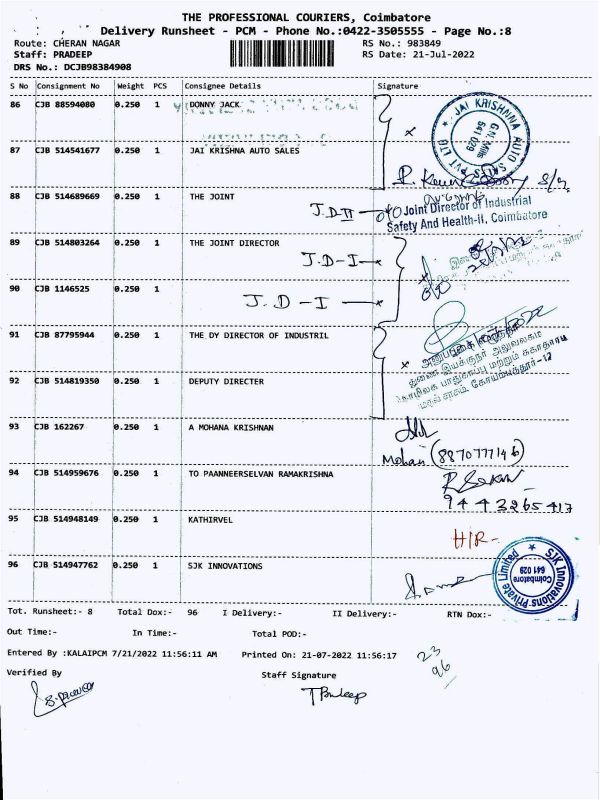 THE PROFESSIONAL COURIERS, Coimbatore
Delivery Runsheet - PCM - Phone No.:0422-3505555 - Page No.:8
Route: CHERAN NAGAR RS No.: 983849
Staff: PRADEEP RS Date: 21-Jul-2022
DRS No.: DCJB98384908
S No Consignment No Weight PCS Consignee Details Signature
86 CJB 88594080 0.250 1 DONNY JACK
JAI KRISHNA AUTO SALES PVT LTD
G.N.Mills
641 029
87 CJB 514541677 0.250 1 JAI KRISHNA AUTO SALES
88 CJB 514689669 0.250 1 THE JOINT
J.D II
Joint Director of Industrial
Safety And Health-II, Coimbatore
89 CJB 514803264 0.250 1 THE JOINT DIRECTOR
J.D-I
90 CJB 1146525 0.250 1
J.D-I
91 CJB 87795944 0.250 1 THE DY DIRECTOR OF INDUSTRIL
92 CJB 514819350 0.250 1 DEPUTY DIRECTER
93 CJB 162267 0.250 1 A MOHANA KRISHNAN
Mohan (8870777146)
94 CJB 514959676 0.250 1 TO PAANNEERSELVAN RAMAKRISHNA
9443265417
95 CJB 514948149 0.250 1 KATHIRVEL
H/R-
96 CJB 514947762 0.250 1 SJK INNOVATIONS
SJK Innovations Private Limited
Coimbatore
641 029
Tot. Runsheet:- 8 Total Dox:- 96 I Delivery:- II Delivery:- RTN Dox:-
Out Time:- In Time:- Total POD:-
Entered By :KALAIPCM 7/21/2022 11:56:11 AM Printed On: 21-07-2022 11:56:17
23
96
Verified By Staff Signature